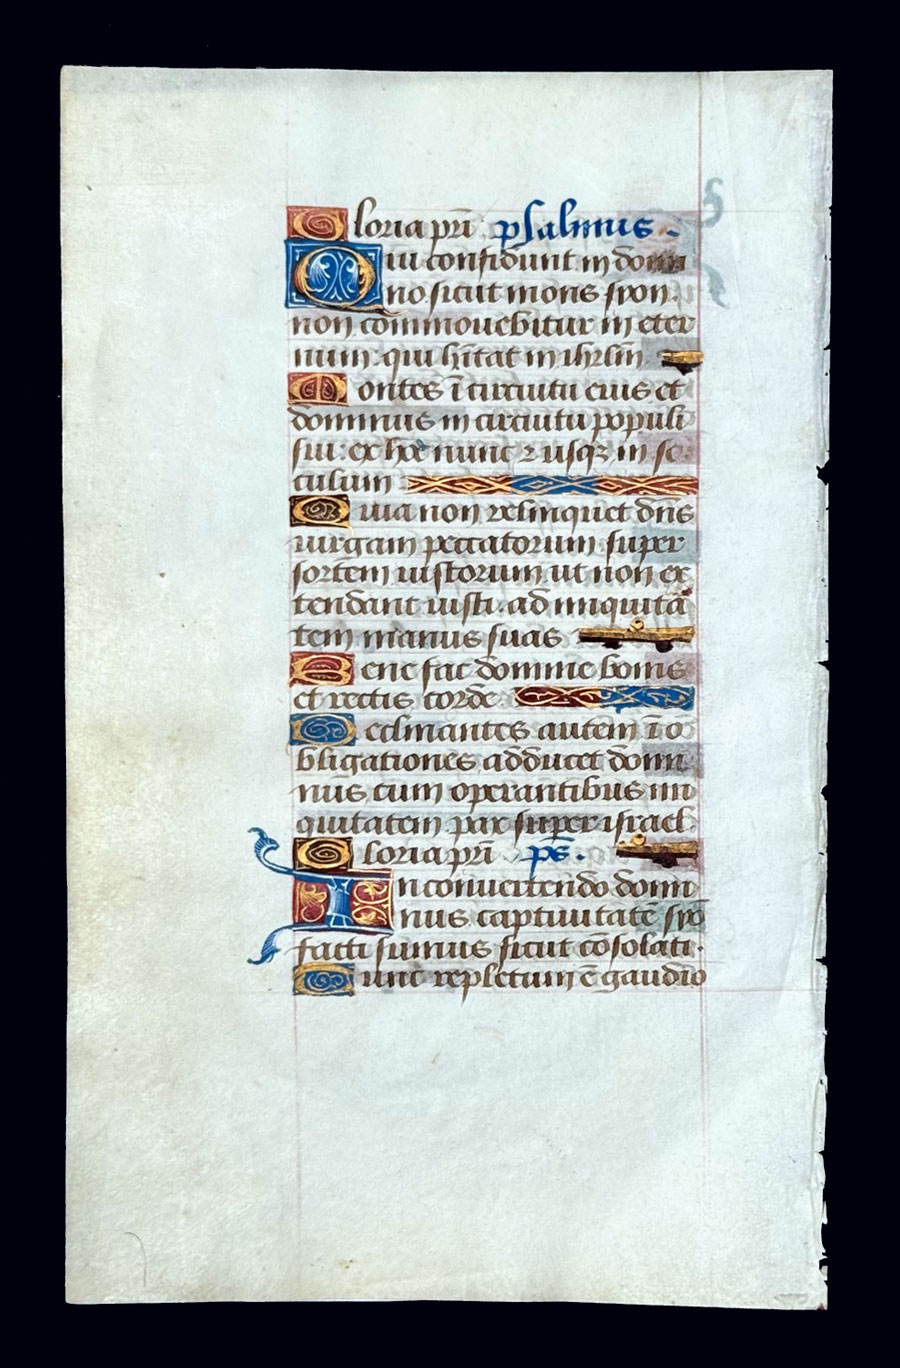 Gloria pri̅ psalmus.
Qui confidunt in domi
no sicut mons syon
non commouebitur in eter
num: qui h̅itat in ihrl̅m
Montes i̅ circuitu eius et
dominus in circuitu populi
sui: ex hoc nunc ⁊ usqꝫ in se
culum
Quia non relinquet dn̅s
uirgam peccatorum super
sortem iustorum ut non ex
tendant iusti ad iniquita̅
tem manus suas
Bene fac domine bonis
et rectis corde
Declinantes autem i̅ o
bligationes adducet domi
nus cum operantibus ini
quitatem pax super israel
Gloria pri̅ ps̅.
In conuertendo domi
nus captiuitate̅ syo̅
facti sumus sicut co̅solati.
Tunc repletum e̅ gaudio